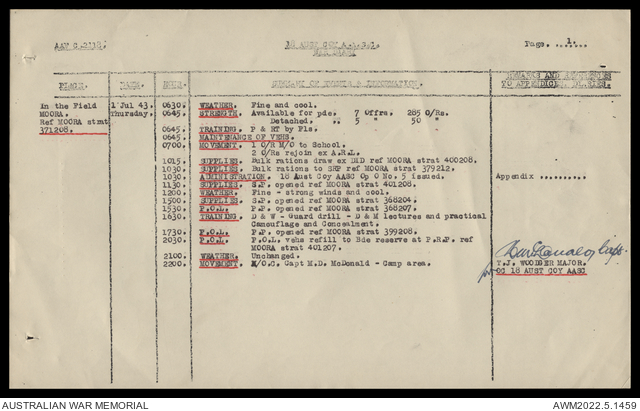 AAF C.2118.
18 AUST COY A.A.S.C.
WAR DIARY
Page. 1.
PLACE. DATE. HOUR. SUMMARY OF EVENTS & INFORMATION. REMARKS AND REFERENCES
TO APPENDICES, DIARIES.
In the Field 1 Jul 43. 0630. WEATHER. Fine and cool.
MOORA. Thursday. 0645. STRENGTH. Available for pde: 7 Offrs. 285 O/Rs.
Ref MOORA strat Detached. ,, 5 " 50 "
371208. 0645. TRAINING. P & RT by Pls.
0645. MAINTENANCE OF VEHS.
0700. MOVEMENT. 1 O/R M/O to School.
2 O/Rs rejoin ex A.R.L.
1015. SUPPLIES. Bulk rations draw ex DID ref MOORA strat 400208.
1030. SUPPLIES. Bulk rations to SRP ref MOORA strat 379212.
1030. ADMINISTRATION. 18 Aust Coy AASC Op O No. 5 issued. Appendix .........
1130. SUPPLIES. S.P. opened ref MOORA strat 401208.
1200. WEATHER. Fine - strong winds and cool.
1500. SUPPLIES. S.P. opened ref MOORA strat 368204.
1530. P.O.L. P.P. opened ref MOORA strat 368207.
1630. TRAINING. D & W - Guard drill - D & M lectures and practical
Camouflage and Concealment.
1730. P.O.L. P.P. opened ref MOORA strat 399208.
2030. P.O.L. P.O.L. vehs refill to Bde reserve at P.R.P. ref
MOORA strat 401207.
2100. WEATHER. Unchanged.
2200. MOVEMENT. M/O.C. Capt M.D. McDonald - Camp area.
Capt.
for
T.J. WOODGER MAJOR.
OC 18 AUST COY AASC
AUSTRALIAN WAR MEMORIAL
AWM2022.5.1459